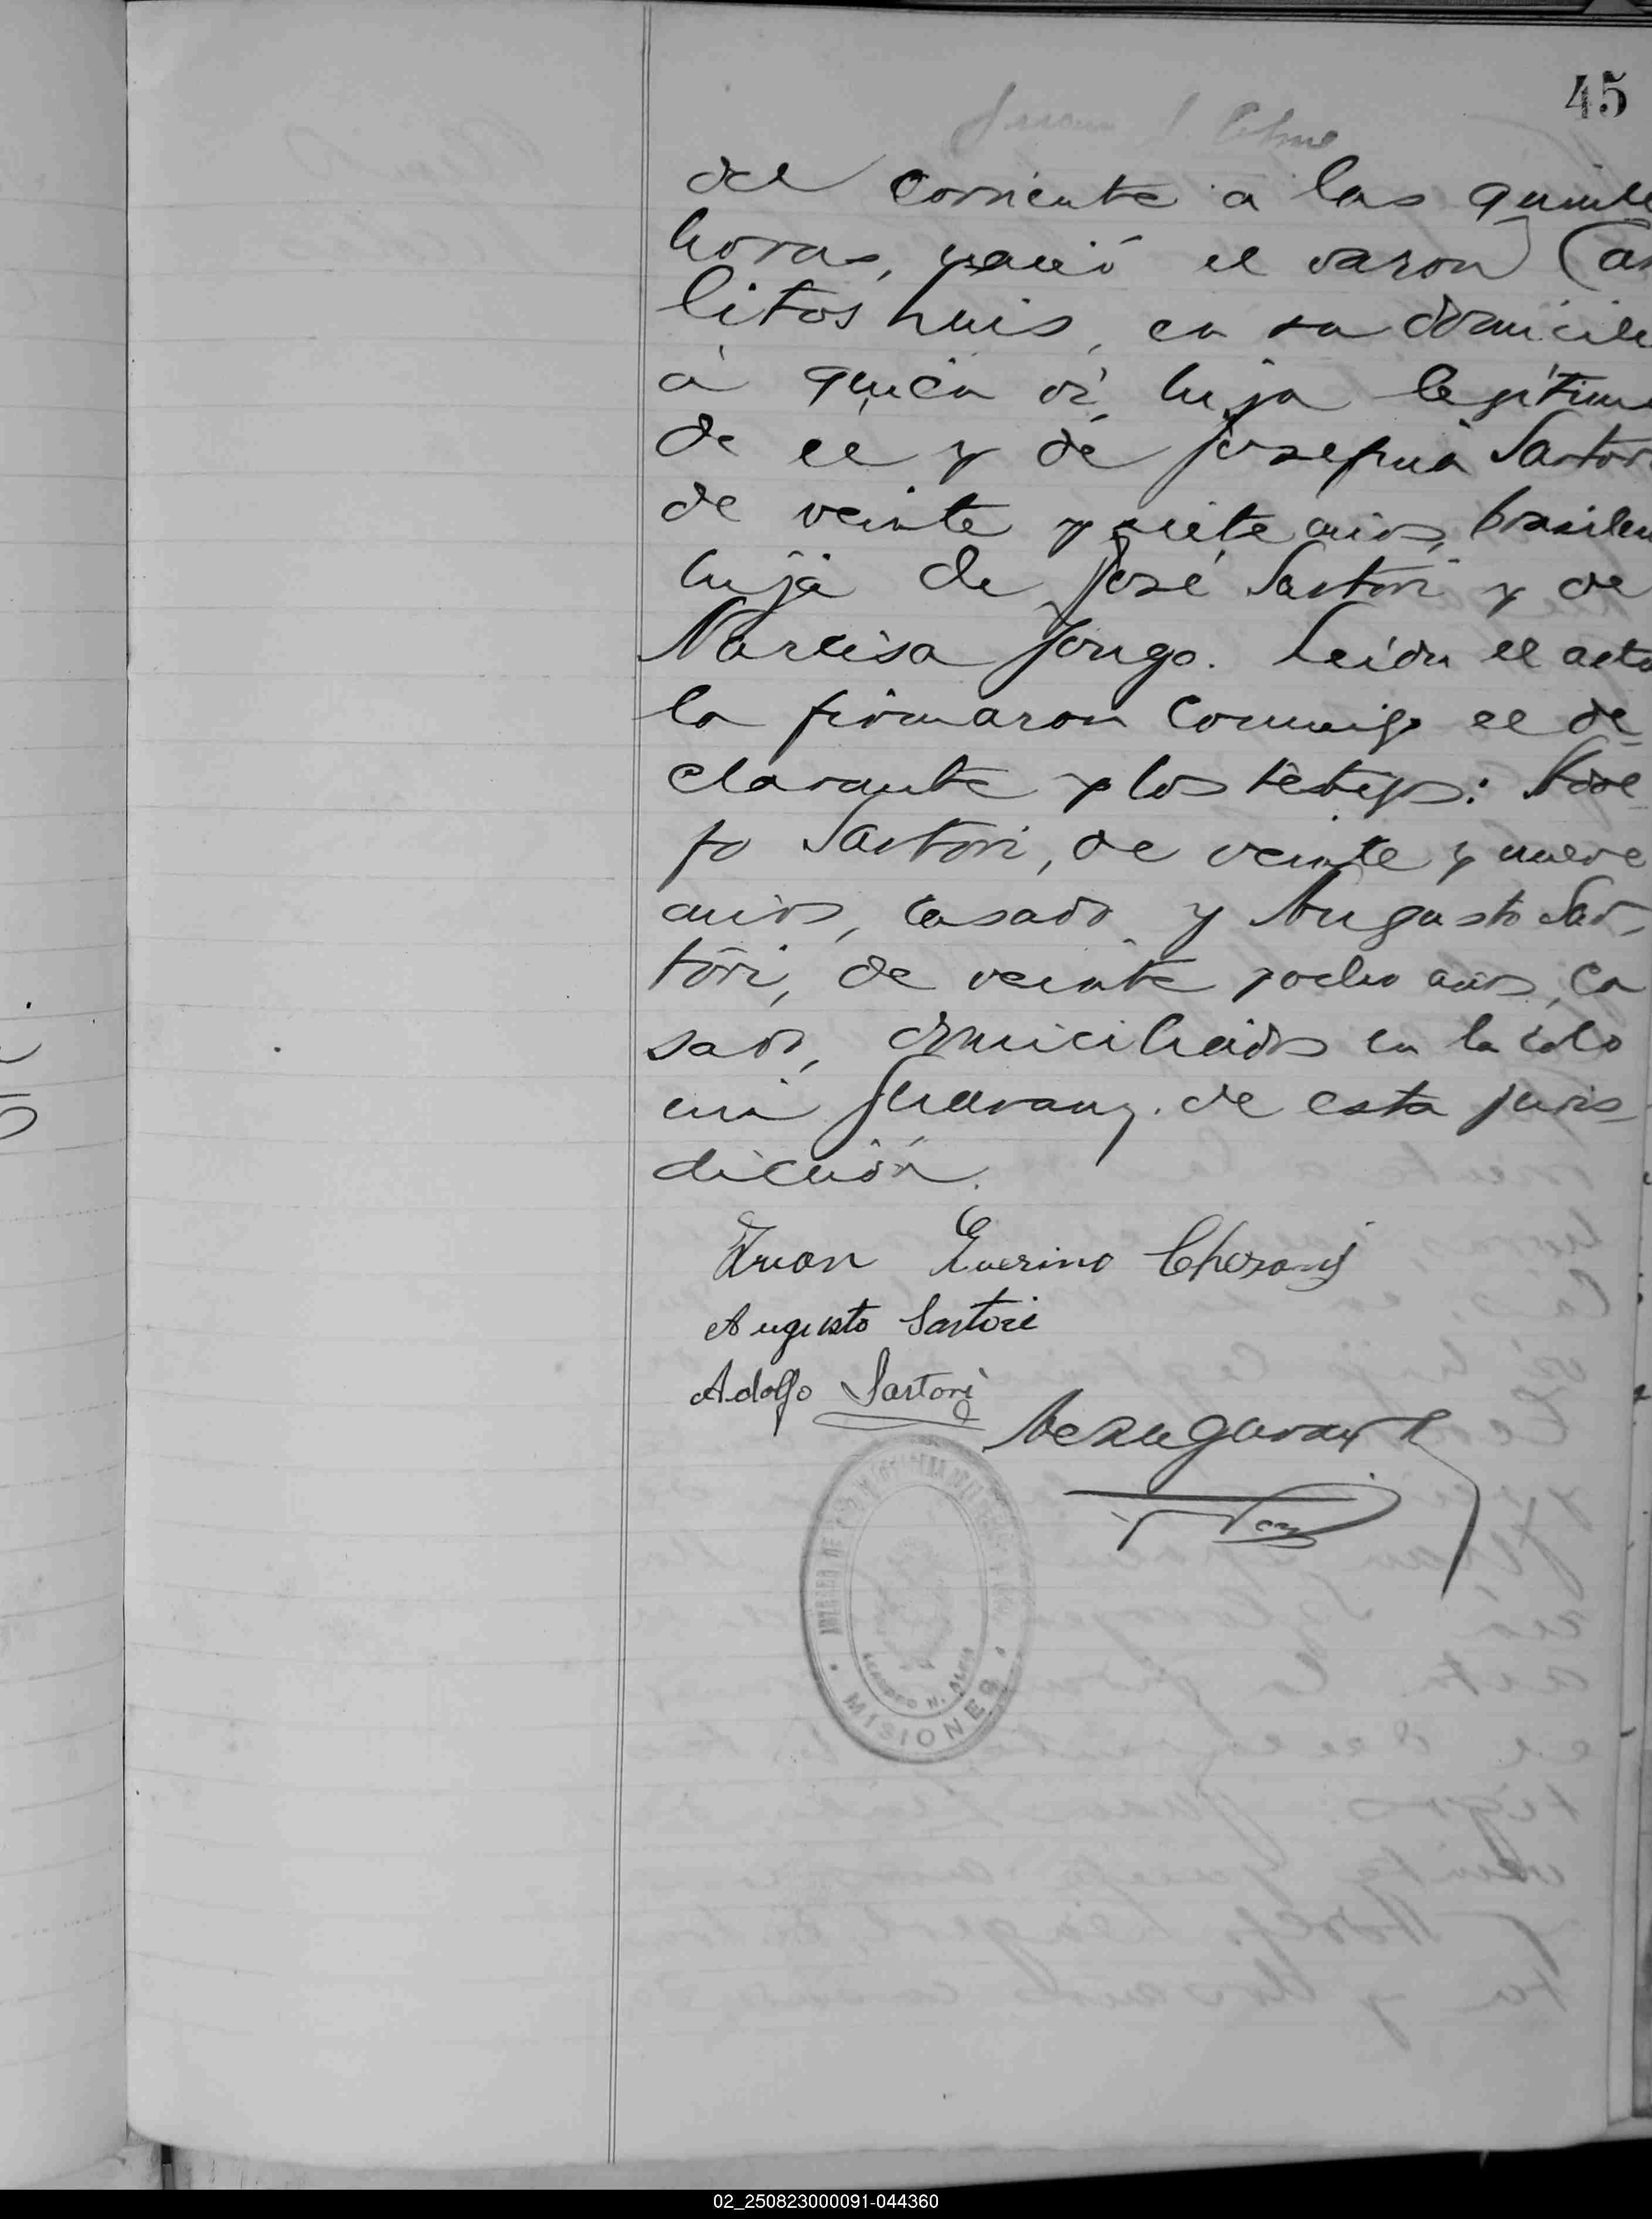 45
del corriente a las quince
horas, nació el varon Car
litos Luis, en su domicilio
á quien ví, hijo legítimo
de el y de Josefina Sartori
de veinte y siete años, brasilera
hija de José Sartori y de
Narcisa Longo. Leida el acta
la firmaron conmigo el de
clarante y los testigos: Adol
fo Sartori, de veinte y nueve
años, casado y Augusto Sar
tori, de veinte y ocho años, ca
sado, domiciliados en la colo
nia Guarany. de esta juris
dicción.
Juan Guerino
Augusto Sartori
Adolfo Sartori
LEANDRO N. ALEM
MISIONES
02_250823000091-044360